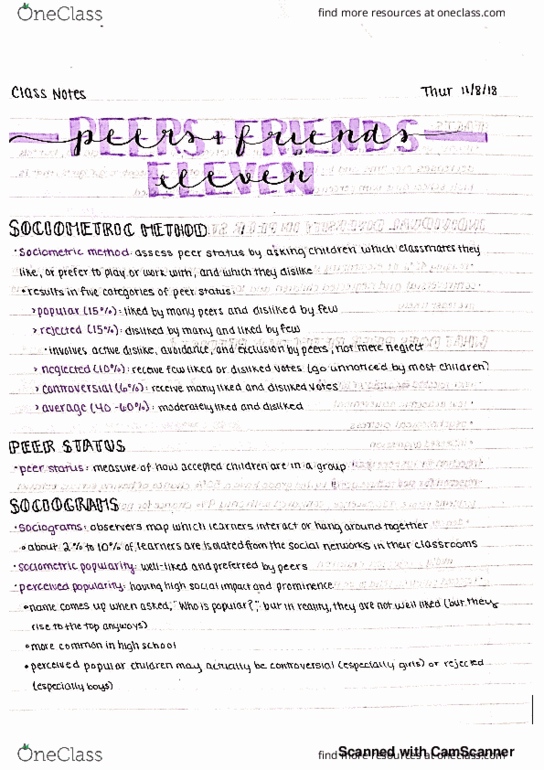 OneClass
find more resources at oneclass.com
Class Notes
Thur 11/8/18
PEERS + FRIENDS
peers + friends
ELEVEN
eleven
SOCIOMETRIC METHOD
• sociometric method: assess peer status by asking children which classmates they
like, or prefer to play or work with, and which they dislike
• results in five categories of peer status:
> popular (15%): liked by many peers and disliked by few
> rejected (15%): disliked by many and liked by few
• involves active dislike, avoidance, and exclusion by peers, not mere neglect
> neglected (10%): receive few liked or disliked votes (go unnoticed by most children)
> controversial (6%): receive many liked and disliked votes
> average (40-60%): moderately liked and disliked
PEER STATUS
• peer status: measure of how accepted children are in a group
SOCIOGRAMS
• sociograms: observers map which learners interact or hang around together
• about 2% to 10% of learners are isolated from the social networks in their classrooms
• sociometric popularity: well-liked and preferred by peers
• perceived popularity: having high social impact and prominence
• name comes up when asked, "Who is popular?", but in reality, they are not well liked (but they
rise to the top anyways)
• more common in high school
• perceived popular children may actually be controversial (especially girls) or rejected
(especially boys)
OneClass
find more resources at oneclass.com
Scanned with CamScanner